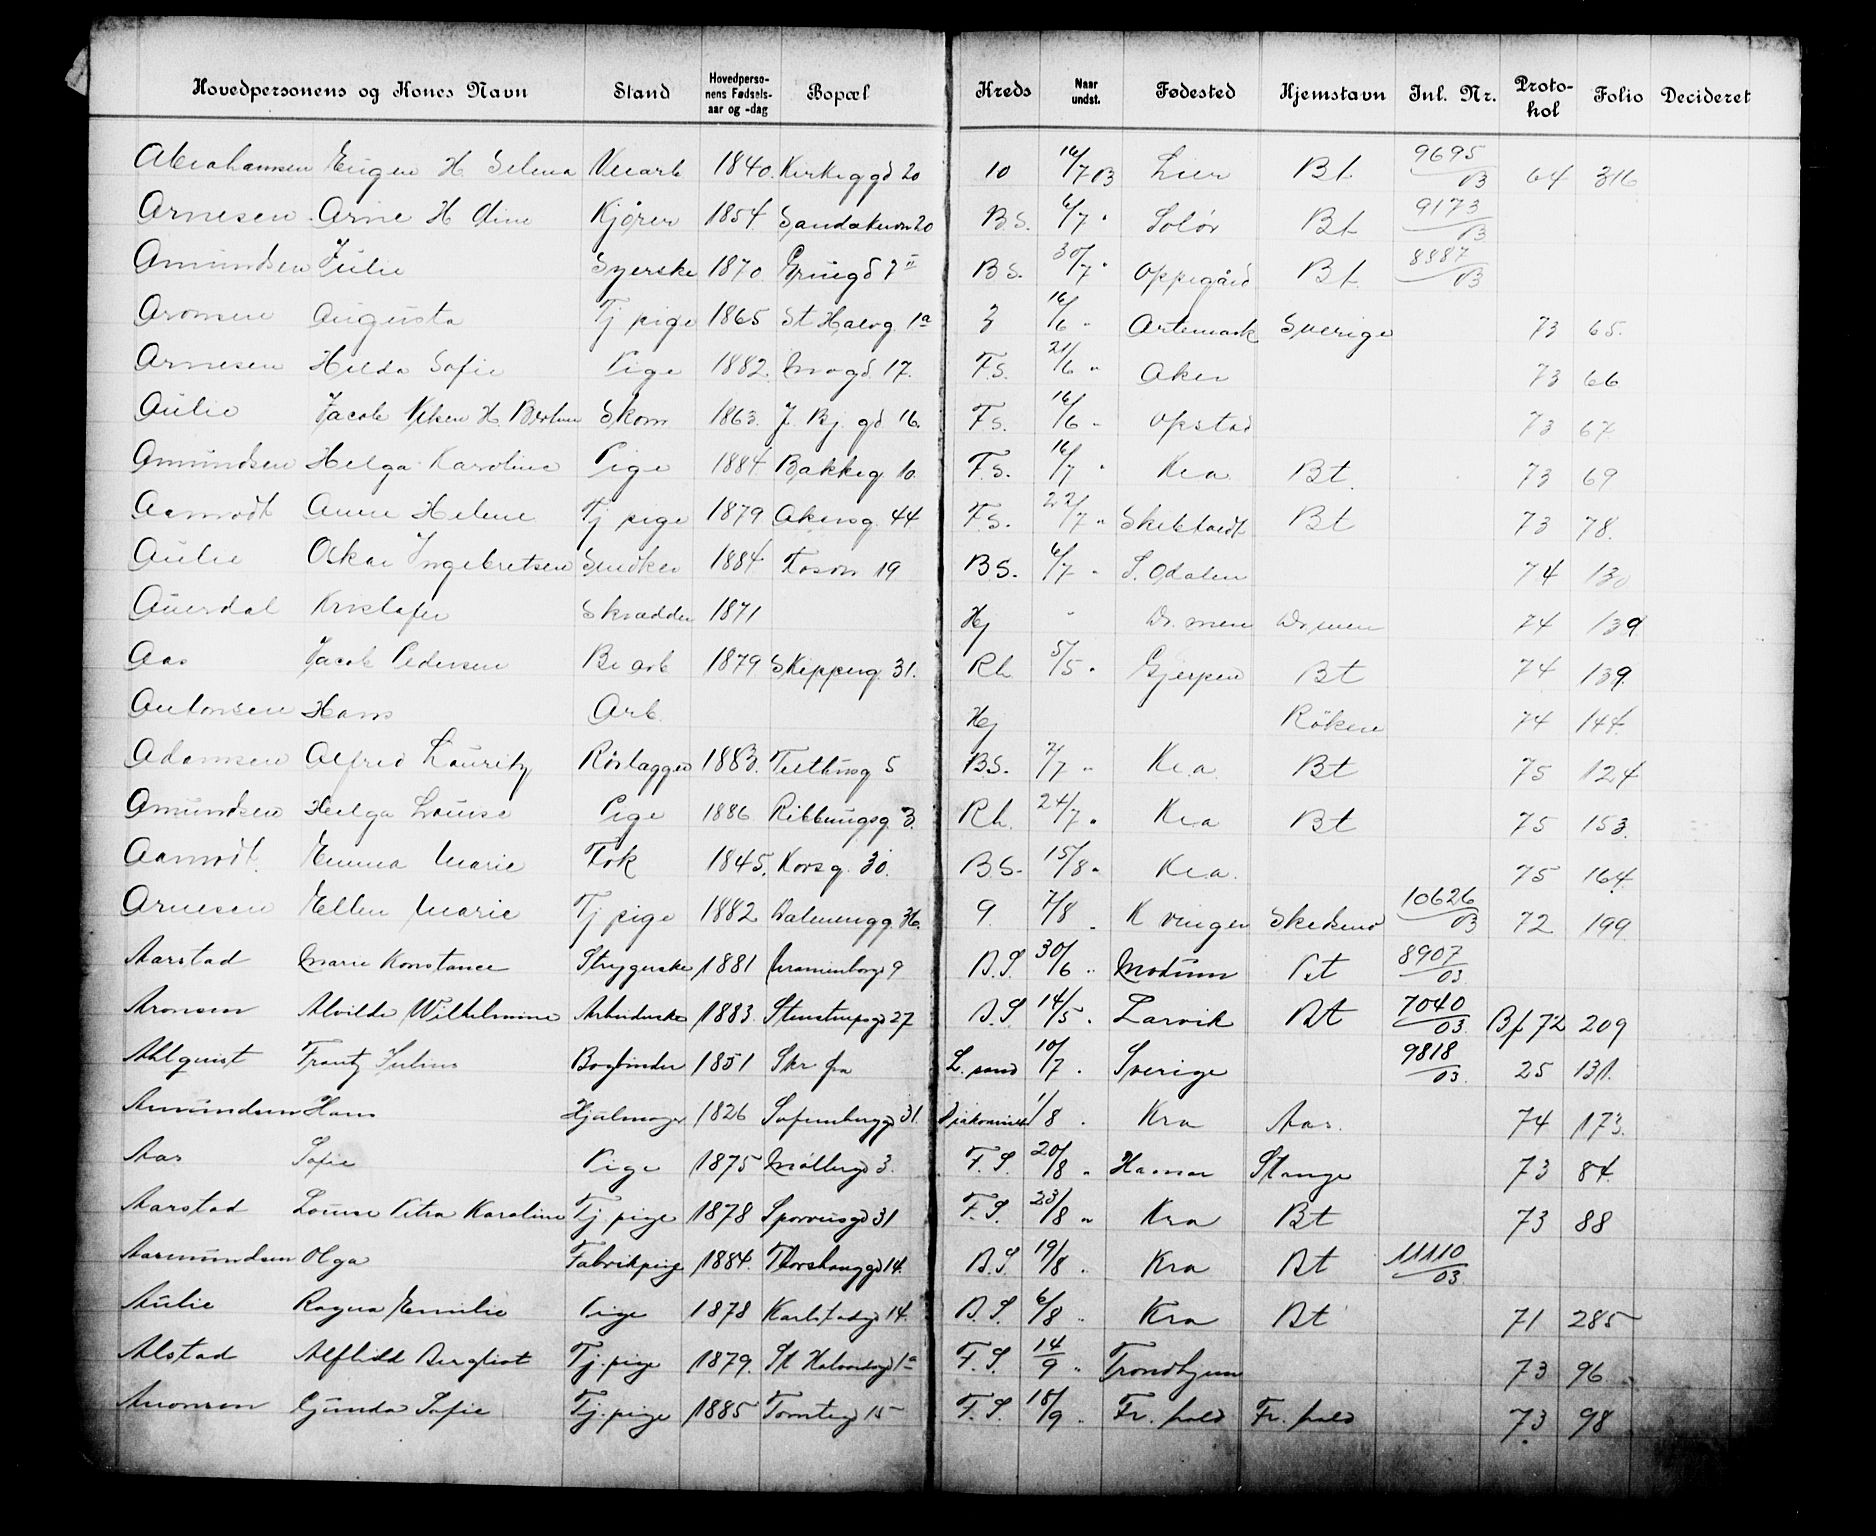 Hovedpersonens og Kones Navn Stand Hovedperso-nens Fødsels-aar og -dag Bopæl Kreds Naar undst. Fødested Hjemstavn Inl. Nr. Proto-kol Folio Decideret
Abrahamsen Eugen H Selma 1840. Kirkeggd 20 10 16/7 03 Lier Bt. 9695/03 64 316
Arnesen Arne H Oline Kjører 1854 Sandakerv 20 B.S. 6/7 " Solør Bt 9173/03
Amundsen Julie Syerske 1870. Gruegd 7 II B S. 30/7 " Oppegård Bt. 8887/03
Aronsen Augusta Tj pige 1865 St Halvg. 1a 3 16/6 " Artemark Sverige 73 65.
Arnesen Hilda Sofie Pige 1882. 17. F.S. 21/6 " Aker 73 66
Aulie Jacob H. Skom 1863. J. Bj. gd 16. F.S. 16/6 " Opstad 73 67
Amundsen Helga Karoline Pige 1884 Bakkeg 10. F.S. 16/7 " Kra Bt. 73 69
Aamodt Anne Helene Tj pige 1879 Akersg. 44 F.S. 22/7 " Bt 73 78.
Aulie Oskar Ingebretsen Snedker 1884 19 B S. 6/7 " S. Odalen 74 130
Auerdal Kristofer Skrædder 1871 Hj " Dr. men Drmen 74 139
Aas Jacob Pedersen Bv arb 1879 Skipperg. 31. Rh 5/5 " Gjerpen Bt 74 139.
Antonsen Hans Arb. Hj Röken 74 144.
Adamsen Alfred Lauritz Rörlægger 1883. 5 B.S. 7/7 " Kra Bt 75 124
Amundsen Helga Louise Pige 1886 Ribbungsg. 3. Rh. 24/7 " Kra Bt 75 153.
Aamodt. Emma Marie Fok 1845. Korsg. 30. B.S. 15/8 " Kra. 75 164
Arnesen Ellen Marie Tj pige 1882 Dalenengg. 36. 9. 7/8 " K vinger Skedsmo 10626/03 72 199
Aarstad Marie Konstance Strygerske 1881 Uranienborgd 9 B.S. 30/6 " Modum Bt 8907/03
Aronsen Alvilde Wilhelmine Arbeiderske 1883. Stenstrupgd 27 B.S. 14/5 " Larvik Bt 7040/03. Bf 72 209
Ahlquist Frantz Julius Bogbinder 1851 Skr fra L. sand 10/7 " Sverige 9818/03. 25 131.
Amundsen Hans 1826 Sofienberggd 31. Diakonisseh 1/8 " Kra Aas. 74 173.
Aas Sofie Pige 1875 Møllergd 3. F.S. 20/8 " Hamar Stange 73 84.
Aarstad Louise Petra Karoline Tj. pige 1878 Sporveisgd 31 F.S. 23/8 " Kra Bt 73 88
Aasmundsen Olga Fabrikpige 1884. Thorshauggd 14. B.S. 19/8 " Kra Bt 11110/03
Aulie Ragna Emilie Pige 1878 Karlstadgd 14. B.S. 6/8 " Kra Bt 71 285
Alstad Alfhild Bergliot Tj. pige 1879. St Halvardsgd 1a F.S. 14/9 " Trondhjem 73 96
Aronsen Gunda Sofie Tj. pige 1885 Tomtegd 15 F.S. 18/9 " Fr. hald Fr. hald 73 98